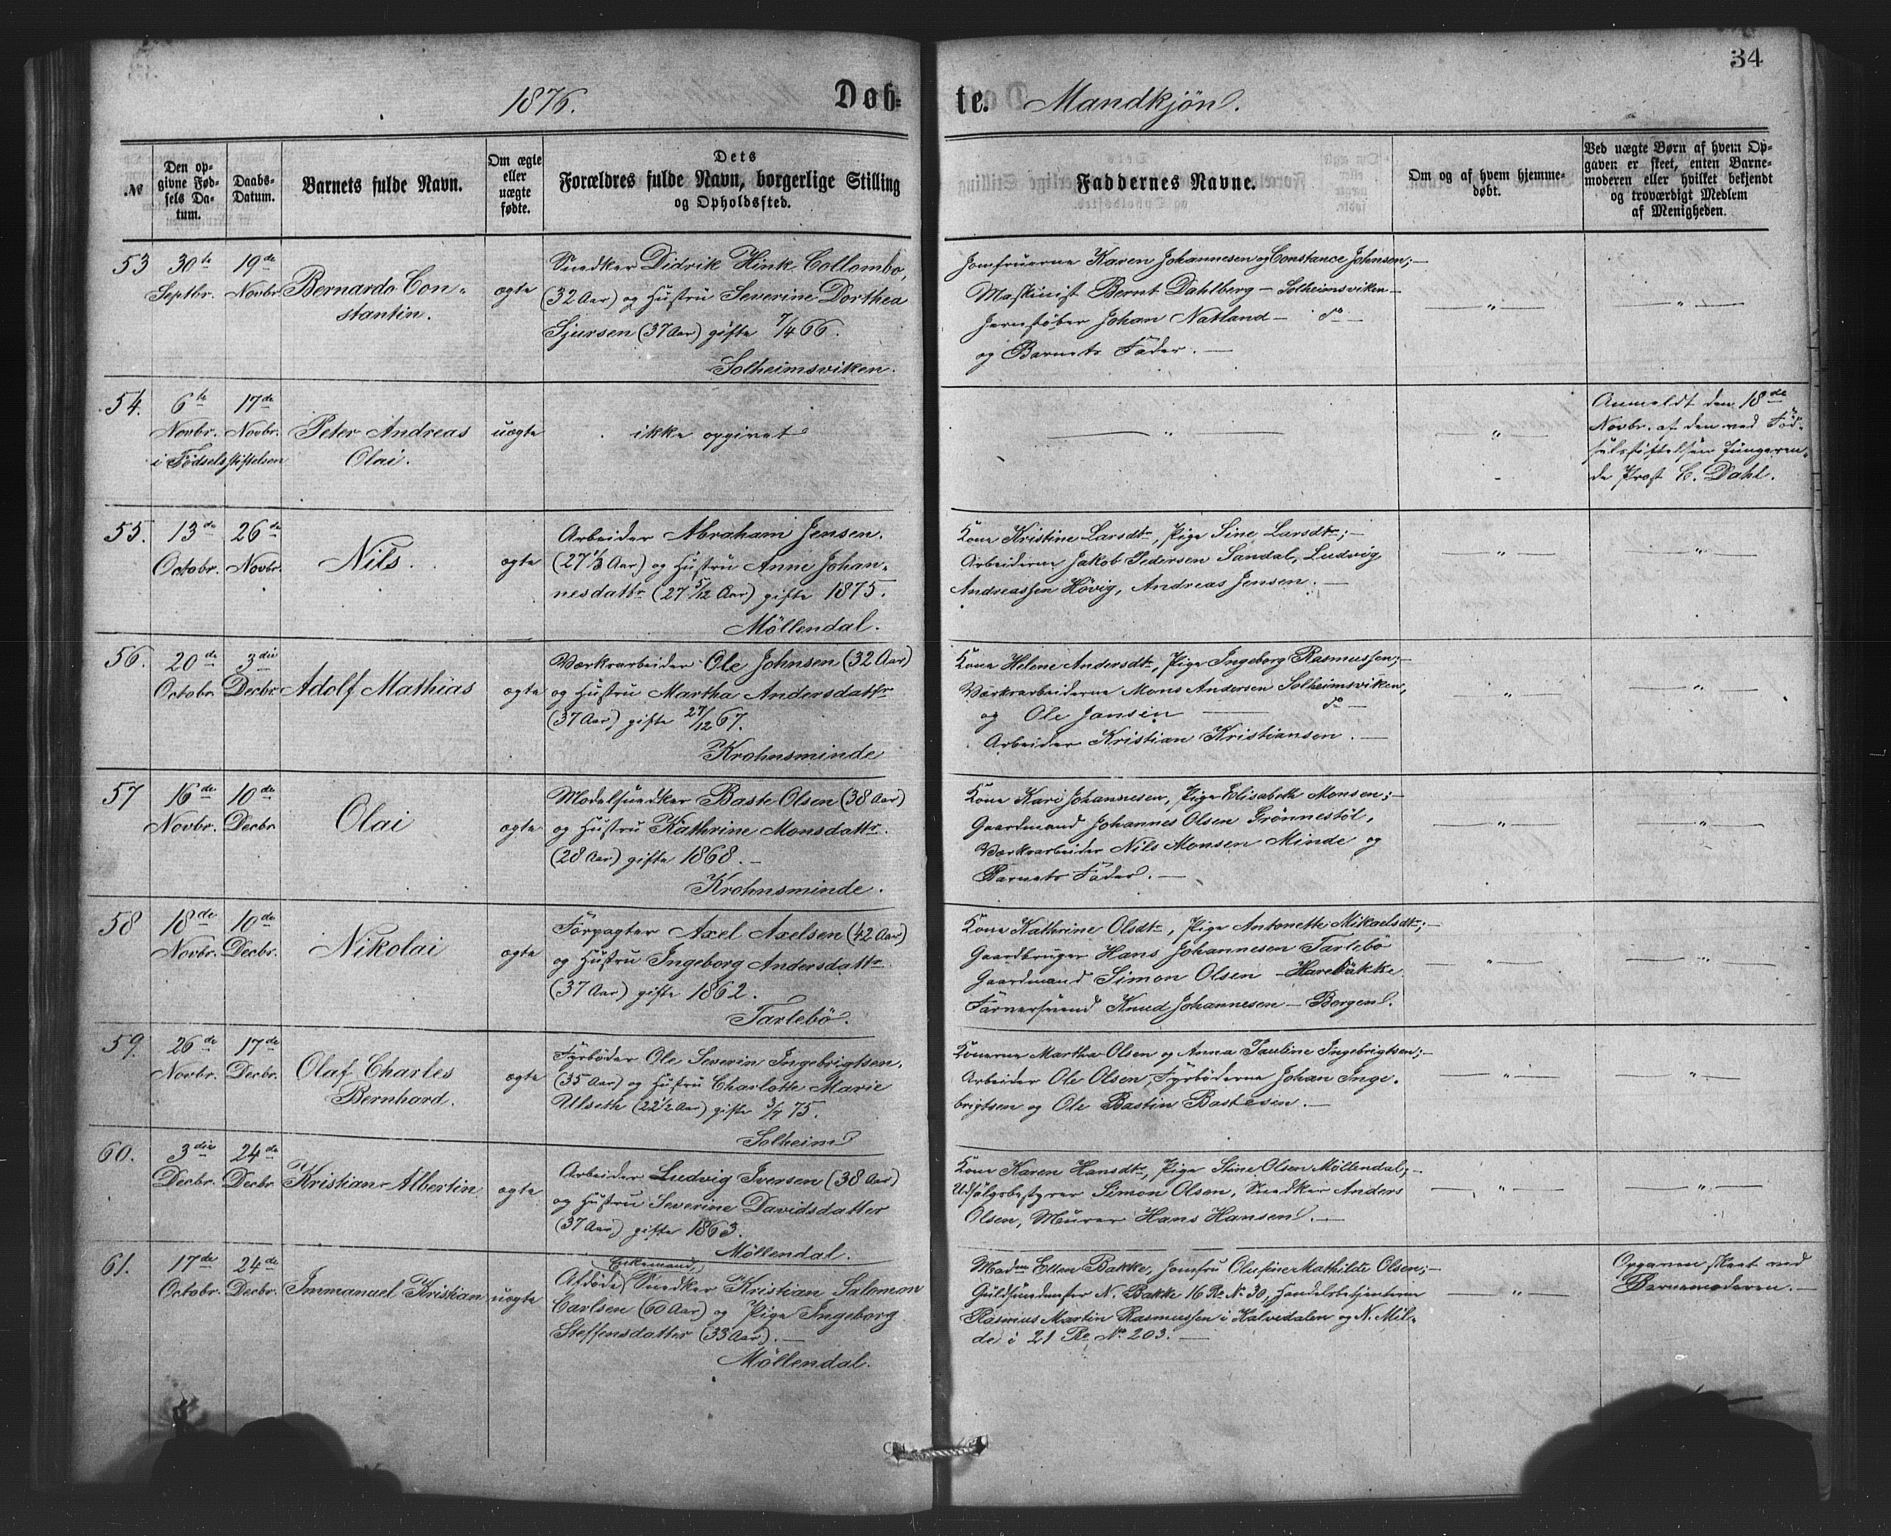 34
1876. Døb= te. Mandkjön.
№
Den op-
givne Fød-
sels Da-
tum.
Daabs-
Datum.
Barnets fulde Navn.
Om ægte
eller
uægte
fødte.
Dets
Forældres fulde Navn, borgerlige Stilling
og Opholdssted.
Faddernes Navne.
Om og af hvem hjemme-
døbt.
Ved uægte Børn af hvem Op-
gaven er skeet, enten Barne-
moderen eller hvilket bekjendt
og troværdigt Medlem
af Menigheden.
53 30te 19de
Septbr. Novbr.
Bernardo Con-
stantin.
ægte
Snedker Didrik Hink Collombo,
(32 Aar) og Hustru Severine Dorthea
Sjursen (37 Aar) gifte 7/4 66.
Solheimsviken.
Jomfruerne Karen Johannesen og Constance Johnsen;
Maskinist Bernt Dahlberg — Solheimsviken —
Jernstøber Johan Natland — do —
og Barnets Fader. —
— „ — — „ —
54. 6te 17de
Novbr. Novbr.
i Fødselsstiftelsen
Peter Andreas
Olai.
uægte
ikke opgivet
— „ — — „ —
Anmeldt den 18de
Novbr. af den ved Fød-
selsstiftelsen fungeren-
de Præst C. Dahl.
55. 13de 26de
Octobr. Novbr.
Nils.
ægte
Arbeider Abraham Jensen.
(27 1/3 Aar) og Hustru Anne Johan-
nesdattr (27 5/12 Aar) gifte 1875.
Möllendal.
Kone Kristine Larsdtr, Pige Sine Larsdtr; —
Arbeiderne Jakob Pedersen Sandal, Ludvig
Andreassen Hövig, Andreas Jensen. —
— „ — — „ —
56. 20de 3die
Octobr. Decbr.
Adolf Mathias
ægte
Værksarbeider Ole Johnsen (32 Aar)
og Hustru Martha Andersdattr
(37 Aar) gifte 27/12 67.
Krohnsminde
Kone Helene Andersdtr, Pige Ingeborg Rasmussen; —
Værksarbeiderne Mons Andersen Solheimsviken,
og Ole Jansen — do —
Arbeider Kristian Kristiansen. —
— „ — — „ —
57 16de 10de
Novbr. Decbr.
Olai
ægte
Modelsnedker Baste Olsen (38 Aar)
og Hustru Kathrine Monsdattr.
(28 Aar) gifte 1868. —
Krohnsminde.
Kone Kari Johannesen, Pige Elisabeth Monsen; —
Gaardmand Johannes Olsen Grönnestöl,
Værksarbeider Nils Monsen Minde og
Barnets Fader. —
— „ — — „ —
58 18de 10de
Novbr. Decbr.
Nikolai
ægte
Forpagter Axel Axelsen (42 Aar)
og Hustru Ingeborg Andersdattr.
(37 Aar) gifte 1862.
Tarlebö.
Kone Kathrine Olsdtr, Pige Antonette Mikaelsdtr; —
Gaardbruger Hans Johannesen Tarlebö
Gaardmand Simon Olsen — Harebakke
Farversvend Knud Johannesen — Bergen.
— „ — — „ —
59. 26de 17de
Novbr. Decbr.
Olaf Charles
Bernhard.
ægte
Fyrböder Ole Severin Ingebrigtsen.
(35 Aar) og Hustru Charlotte Marie
Ulseth (22 1/2 Aar) gifte 3/7 75.
Solheim
Konerne Martha Olsen og Anna Pauline Ingebrigtsen; —
Arbeider Ole Olsen, Fyrböderne Johan Inge-
brigtsen og Ole Bastin Bastesen. —
— „ — — „ —
60. 3die 24de
Decbr. Decbr.
Kristian Albertin
ægte
Arbeider Ludvig Iversen (38 Aar)
og Hustru Severine Davidsdatter
(37 Aar) gifte 1863.
Möllendal.
Kone Karen Hansdtr, Pige Stine Olsen Möllendal; —
Udsalgsbestyrer Simon Olsen, Snedker Anders
Olsen, Murer Hans Hansen. —
— „ — — „ —
61. 17de 24de
Octobr. Decbr.
Immanuel Kristian
uægte
Enkemand,
Afdöde Snedker Kristian Salomon
Carlsen (60 Aar) og Pige Ingeborg
Steffensdatter (33 Aar). —
Möllendal.
Madm Ellen Bakke, Jomfru Olufine Mathilde Olsen; —
Guldsmedmester N. Bakke 16 Rd No 30, Handelsbetjenterne
Rasmus Martin Rasmussen i Kalvedalen og N. Mil-
de i 21 Rd No 203. —
— „ —
Opgaven skeet ved
Barnemoderen. —